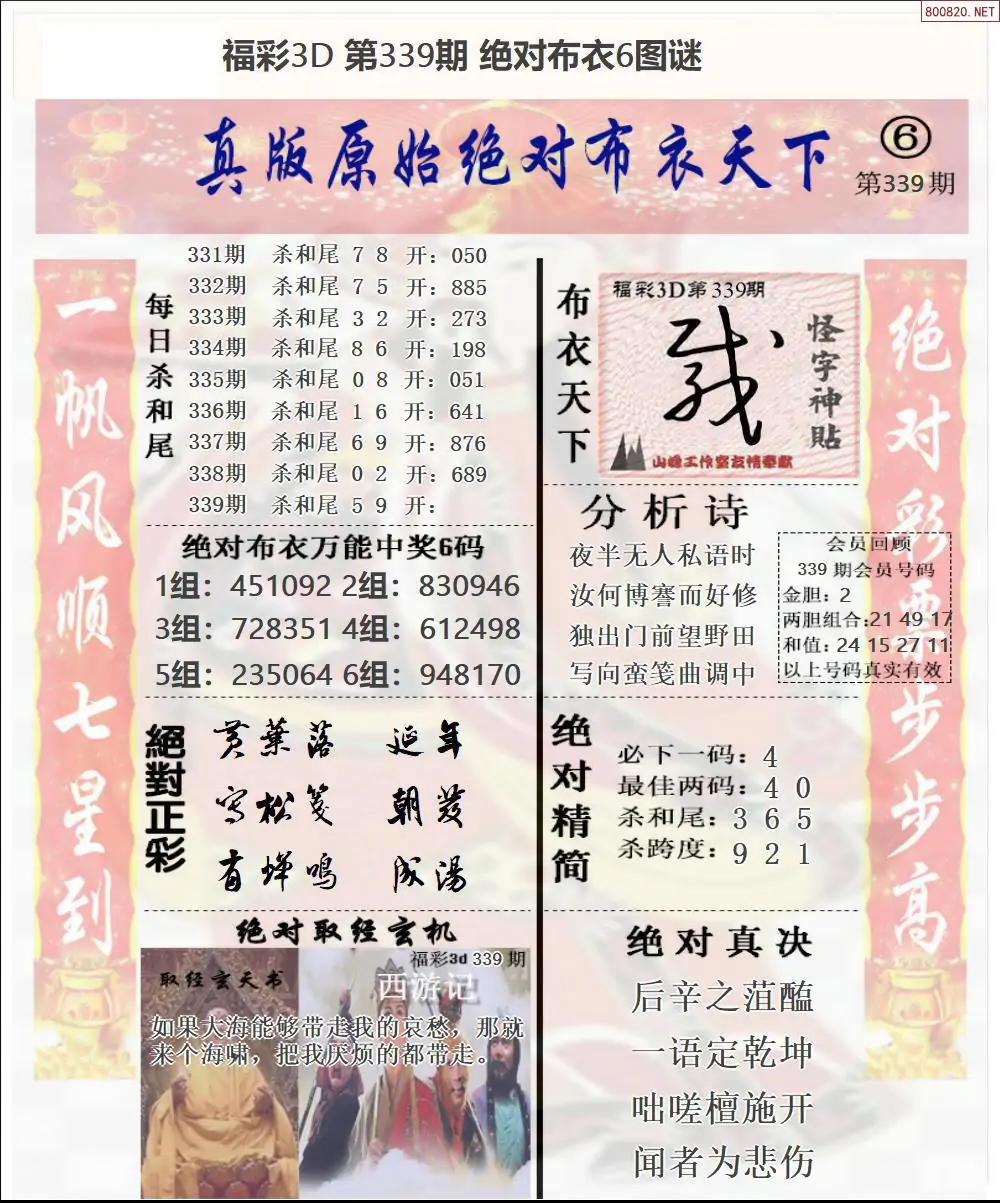 800820.NET
福彩3D 第339期 绝对布衣6图谜
真版原始绝对布衣天下
6
第339期
一帆风顺七星到
每日杀和尾
331期 杀和尾 7 8 开：050
332期 杀和尾 7 5 开：885
333期 杀和尾 3 2 开：273
334期 杀和尾 8 6 开：198
335期 杀和尾 0 8 开：051
336期 杀和尾 1 6 开：641
337期 杀和尾 6 9 开：876
338期 杀和尾 0 2 开：689
339期 杀和尾 5 9 开：
绝对布衣万能中奖6码
1组：451092 2组：830946
3组：728351 4组：612498
5组：235064 6组：948170
絕對正彩
黄葉落 延年
写松笺 朝发
有蝉鸣 成湯
绝对取经玄机
福彩3d 339 期
取经玄天书
西游记
如果大海能够带走我的哀愁，那就
来个海啸，把我厌烦的都带走。
布衣天下
福彩3D第339期
怪字神贴
山峰工作室友情奉献
分析诗
夜半无人私语时
汝何博謇而好修
独出门前望野田
写向蛮笺曲调中
会员回顾
339 期会员号码
金胆：2
两胆组合:21 49 17
和值：24 15 27 11
以上号码真实有效
绝对精简
必下一码：4
最佳两码：4 0
杀和尾：3 6 5
杀跨度：9 2 1
绝对真决
后辛之菹醢
一语定乾坤
咄嗟檀施开
闻者为悲伤
绝对彩票步步高